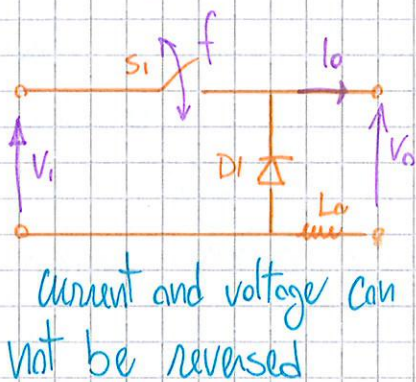 S1
f
Io
V1
D1
Vo
La
current and voltage can
not be reversed